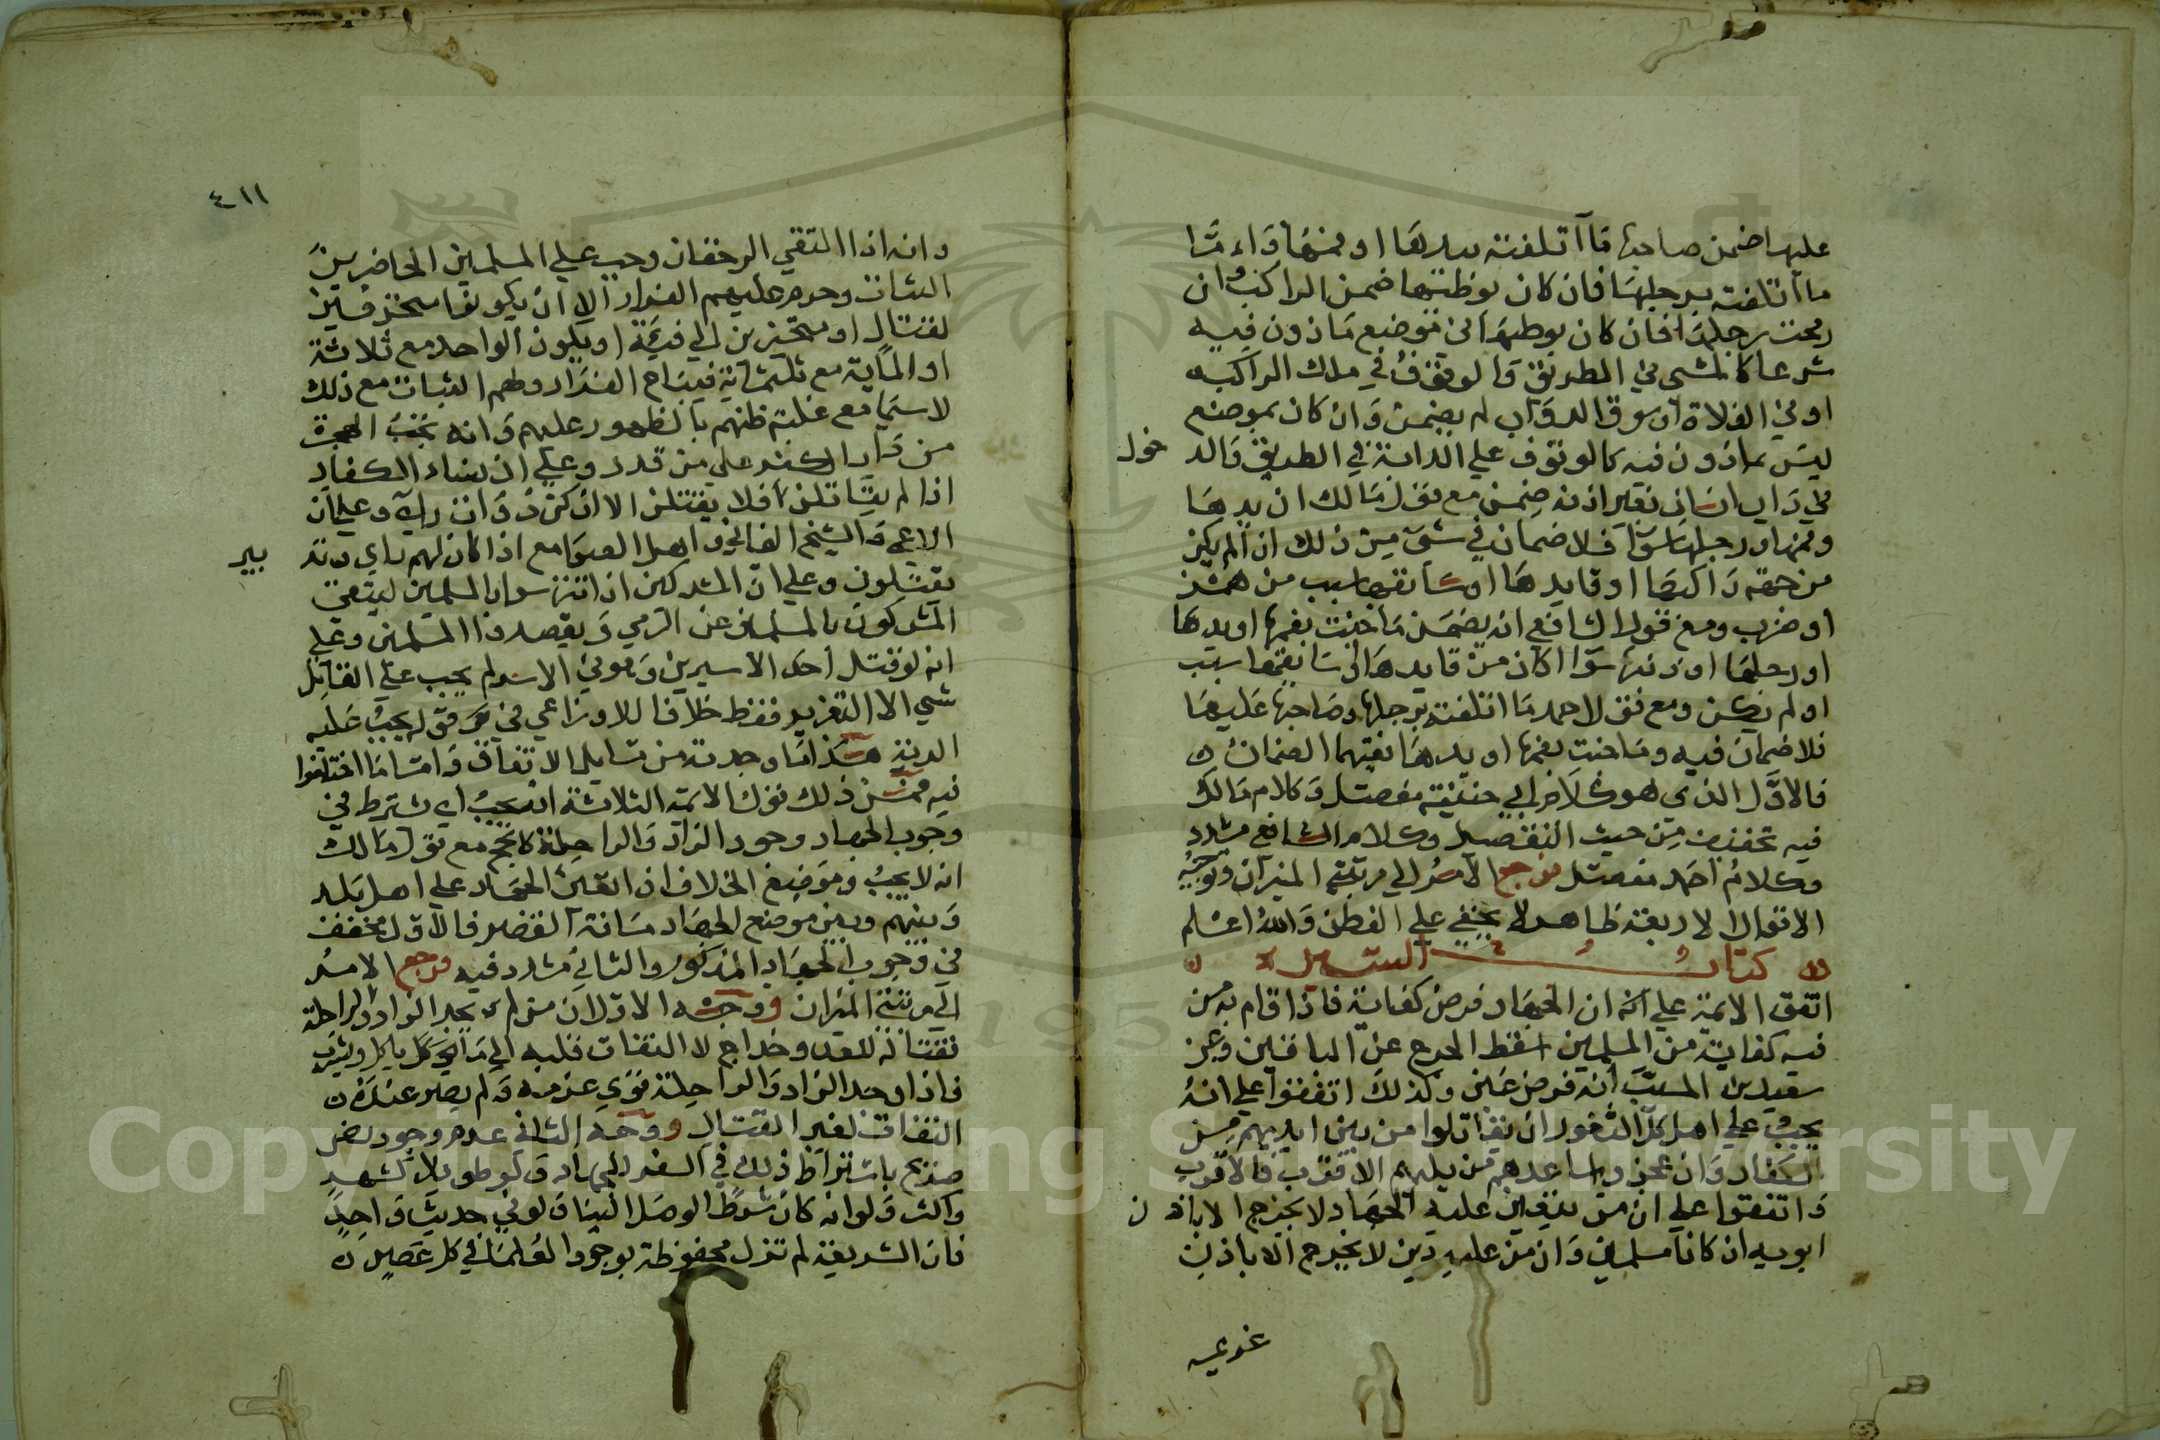 عليها ضمن صاحبها ما اتلفته بيدها او بفمها واما
ما اتلفته برجلها فان كان بوطئها ضمن الراكب وان
رمحت برجلها فان كان بوطئها في موضع ماذون فيه
شرعا كالمشي في الطريق والوقوف في ملك الراكب
او في الفلاة او سوق الدواب لم يضمن وان كان بموضع
ليس بماذون فيه كالوقوف على الدابة في الطريق والدخول
في دار انسان بغير اذنه ضمن مع قول مالك ان يدها
وفمها ورجلها سوا فلا ضمان في شي من ذلك اذا لم يكن
من جهة راكبها او قايدها او سائقها سبب من همز
او ضرب ومع قول الشافعي انه يضمن ما جنت بفمها او يدها
او رجلها او ذنبها سوا كان من قايدها او سائقها سبب
او لم يكن ومع قول احمد ما اتلفته برجلها وصاحبها عليها
فلا ضمان فيه وما جنت بفمها او يدها ففيهما الضمان ه
فالاول الذي هو كلام ابي حنيفة مفصل وكلام مالك
فيه تخفيف من حيث التفصيل وكلام الشافعي مشدد
وكلام احمد مفصل فرجع الامر الى مرتبتي الميزان وتوجيه
الاقوال الاربعة ظاهر لا يخفى على الفطن والله اعلم
كتاب السير
اتفق الائمة على ان الجهاد فرض كفاية فاذا قام به من
فيه كفاية من المسلمين سقط الحرج عن الباقين وعن
سعيد بن المسيب انه فرض عين وكذلك اتفقوا على انه
يجب على اهل كل الثغور ان يقاتلوا من بين ايديهم من
الكفار وان عجزوا ساعدهم من يليهم الاقرب فالاقرب
واتفقوا على ان من يتعين عليه الجهاد لا يخرج الا باذن
ابويه ان كانا مسلمين وان من عليه دين لا يخرج الا باذن
غريمه
٤١١
وانه اذا التقى الزحفان وجب على المسلمين الحاضرين
الثبات وحرم عليهم الفرار الا ان يكونوا متحرفين
لقتال او متحيزين الى فيئة او يكون الواحد مع ثلاثة
او الماية مع ثلثماية فيباح الفرار ولهم الثبات مع ذلك
لا سيما مع غلبة ظنهم بالظهور عليهم وانه يجب الهجرة
من ديار الكفر على من قدر وعلى ان نساء الكفار
اذا لم يقاتلن فلا يقتلن الا ان كن ذوات راي وعلى ان
الاعمى والشيخ الفاني واهل الصوامع اذا كان لهم راي وتدبير
يقتلون وعلى ان المشركين اذا تترسوا بالمسلمين ليتقي
المشركون بالمسلمين عن الرمي ويقصدوا المسلمين وعلى
انه لو قتل احد الاسيرين وهو في الاسر لم يجب على القاتل
شي الا التعزير فقط خلافا للاوزاعي في قوله يجب عليه
الدية هكذا ما وجدته من مسايل الاتفاق واما ما اختلفوا
فيه فمن ذلك قول الائمة الثلاثة انه يجب اي يشترط في
وجوب الجهاد وجود الزاد والراحلة كالحج مع قول مالك
انه لا يجب وموضع الخلاف ان تعين الجهاد على اهل بلد
وبينهم وبين موضع الجهاد مسافة القصر فالاول مخفف
في وجوب الجهاد المذكور والثاني مشدد فيه فرجع الامر
الى مرتبتي الميزان ووجه الاول ان من لم يجد الزاد والراحلة
فاذا وجد الزاد والراحلة قوي عزمه ولم يصر عنده
التفات لغير القتال ووجه الثاني عدم وجود نص
صريح باشتراط ذلك في السفر للجهاد ولو طويلا
ولو انه كان شرطا لوصل الينا ولو في حديث واحد
فان الشريعة لم تزل محفوظة بوجود العلما في كل عصر ه
Copy ing S ersity
195